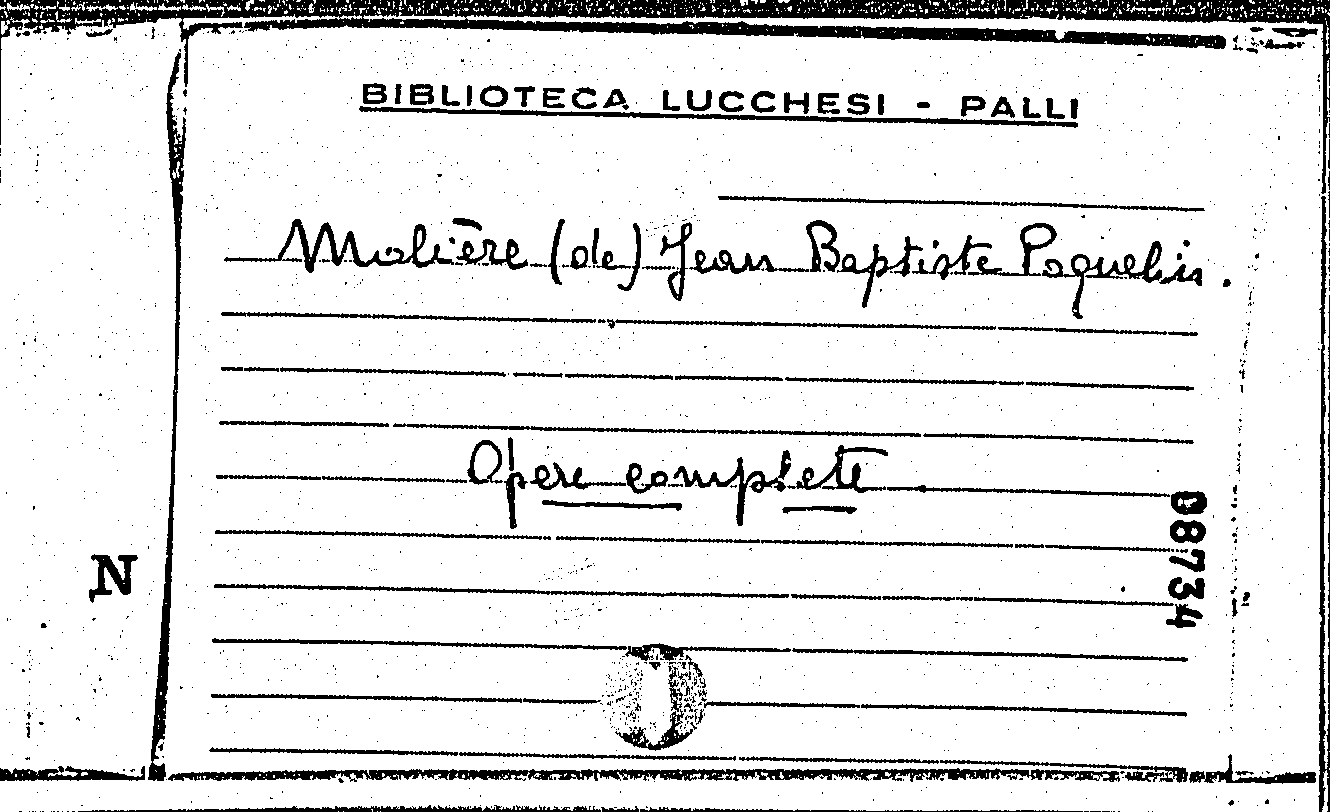 BIBLIOTECA LUCCHESI - PALLI
Molière (de) Jean Baptiste Poquelin.
Opere complete.
08734
N